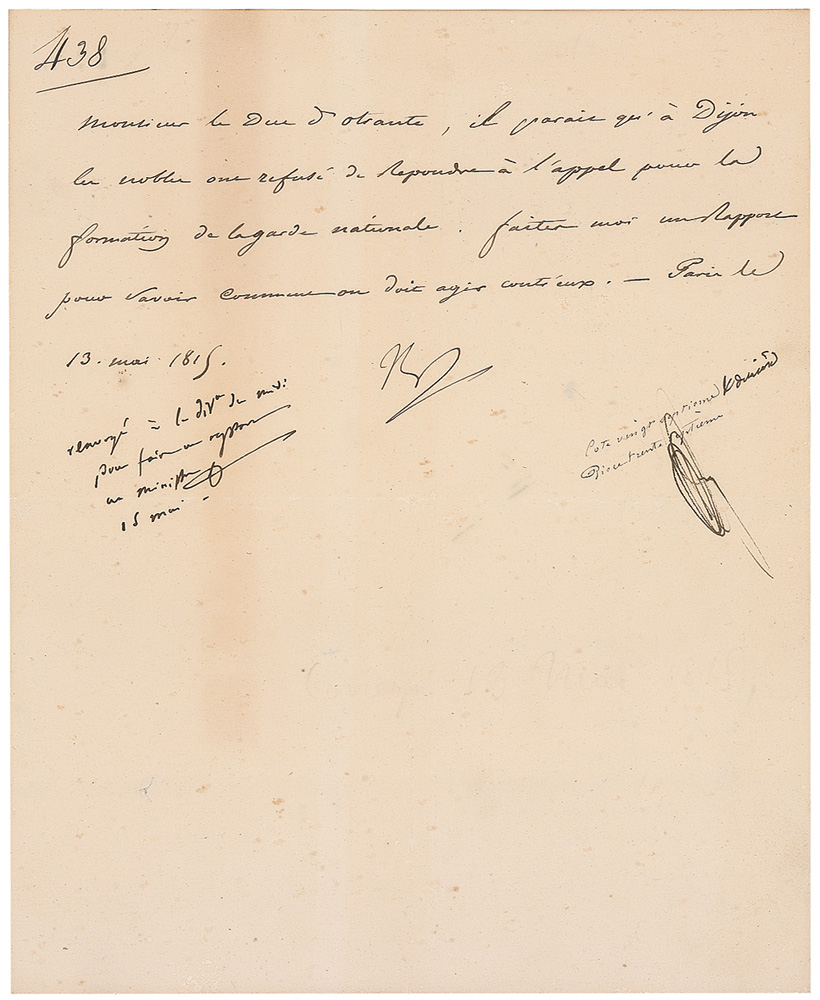 438
Monsieur le Duc d'otrante, il parait qu'à Dijon
les nobles ont refusé de Repondre à l'appel pour la
formation de la garde nationale. faites moi un Rapport
pour savoir comment on doit agir contr'eux. — Paris le
13. mai 1815.
Np
renvoyé à la divon du midi
pour faire un rapport
au ministre
15 mai -
Cote vingt septieme
Piece trente septième